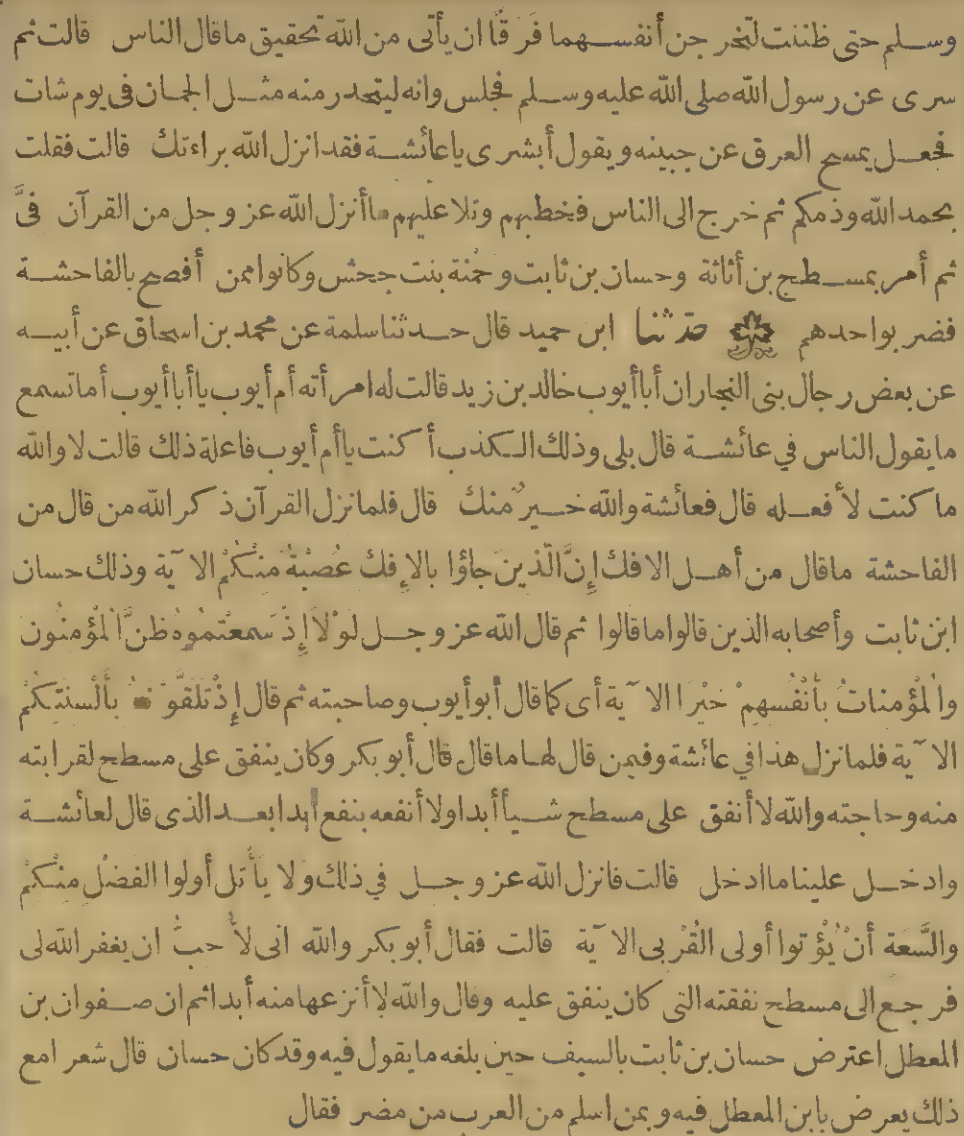 وسلم حتى ظننت لتخرجن أنفسهما فَرَقًا ان يأتى من الله تحقيق ماقال الناس قالت ثم
سرى عن رسول الله صلى الله عليه وسلم فجلس وانه ليتحدر منه مثل الجمان فى يوم شات
فجعل يمسح العرق عن جبينه ويقول أبشرى ياعائشة فقد انزل الله براءتك قالت فقلت
بحمد الله وذمكم ثم خرج الى الناس فخطبهم وتلا عليهم ماأنزل الله عز وجل من القرآن فىَّ
ثم أمر بمسطح بن أثاثة وحسان بن ثابت وحمنة بنت جحش وكانوا ممن أفصح بالفاحشة
فضربوا حدهم حدثنا ابن حميد قال حدثنا سلمة عن محمد بن اسحاق عن أبيه
عن بعض رجال بنى النجار ان أباأيوب خالد بن زيد قالت له امرأته أم أيوب ياأباأيوب أماتسمع
مايقول الناس في عائشة قال بلى وذلك الكذب أكنت ياأم أيوب فاعلة ذلك قالت لا والله
ما كنت لأفعله قال فعائشة والله خيرٌ منك قال فلما نزل القرآن ذكر الله من قال من
الفاحشة ماقال من أهل الافك إِنَّ الَّذينَ جاؤا بالإِفكِ عُصْبةٌ منْكُمْ الآية وذلك حسان
ابن ثابت وأصحابه الذين قالوا ماقالوا ثم قال الله عز وجل لَوْلاَ إِذْ سَمعْتُموُهُ ظنَّ الْمؤْمنُون
والْمؤمناتُ بأَنْفُسهِمْ خيْرًا الآية أى كما قال أبوأيوب وصاحبته ثم قال إِذْ تَلقَّوْنَهُ بأَلْسنتِكُمْ
الآية فلما نزل هذا في عائشة وفيمن قال لها ماقال قال أبو بكر وكان ينفق على مسطح لقرابته
منه وحاجته والله لاأنفق على مسطح شيأ أبدا ولاأنفعه بنفع أبدا بعد الذى قال لعائشة
وادخل علينا ماادخل قالت فانزل الله عز وجل في ذلك وَلا يأْتل أولوا الفَضْل منْكُمْ
والسَّعة أنْ يُؤْتوا أولى القُرْبى الآية قالت فقال أبو بكر والله انى لأُحبُّ ان يغفر الله لى
فرجع الى مسطح نفقته التى كان ينفق عليه وقال والله لاأنزعها منه أبدا ثم ان صفوان بن
المعطل اعترض حسان بن ثابت بالسيف حين بلغه مايقول فيه وقد كان حسان قال شعرا مع
ذلك يعرض بابن المعطل فيه وبمن اسلم من العرب من مضر فقال